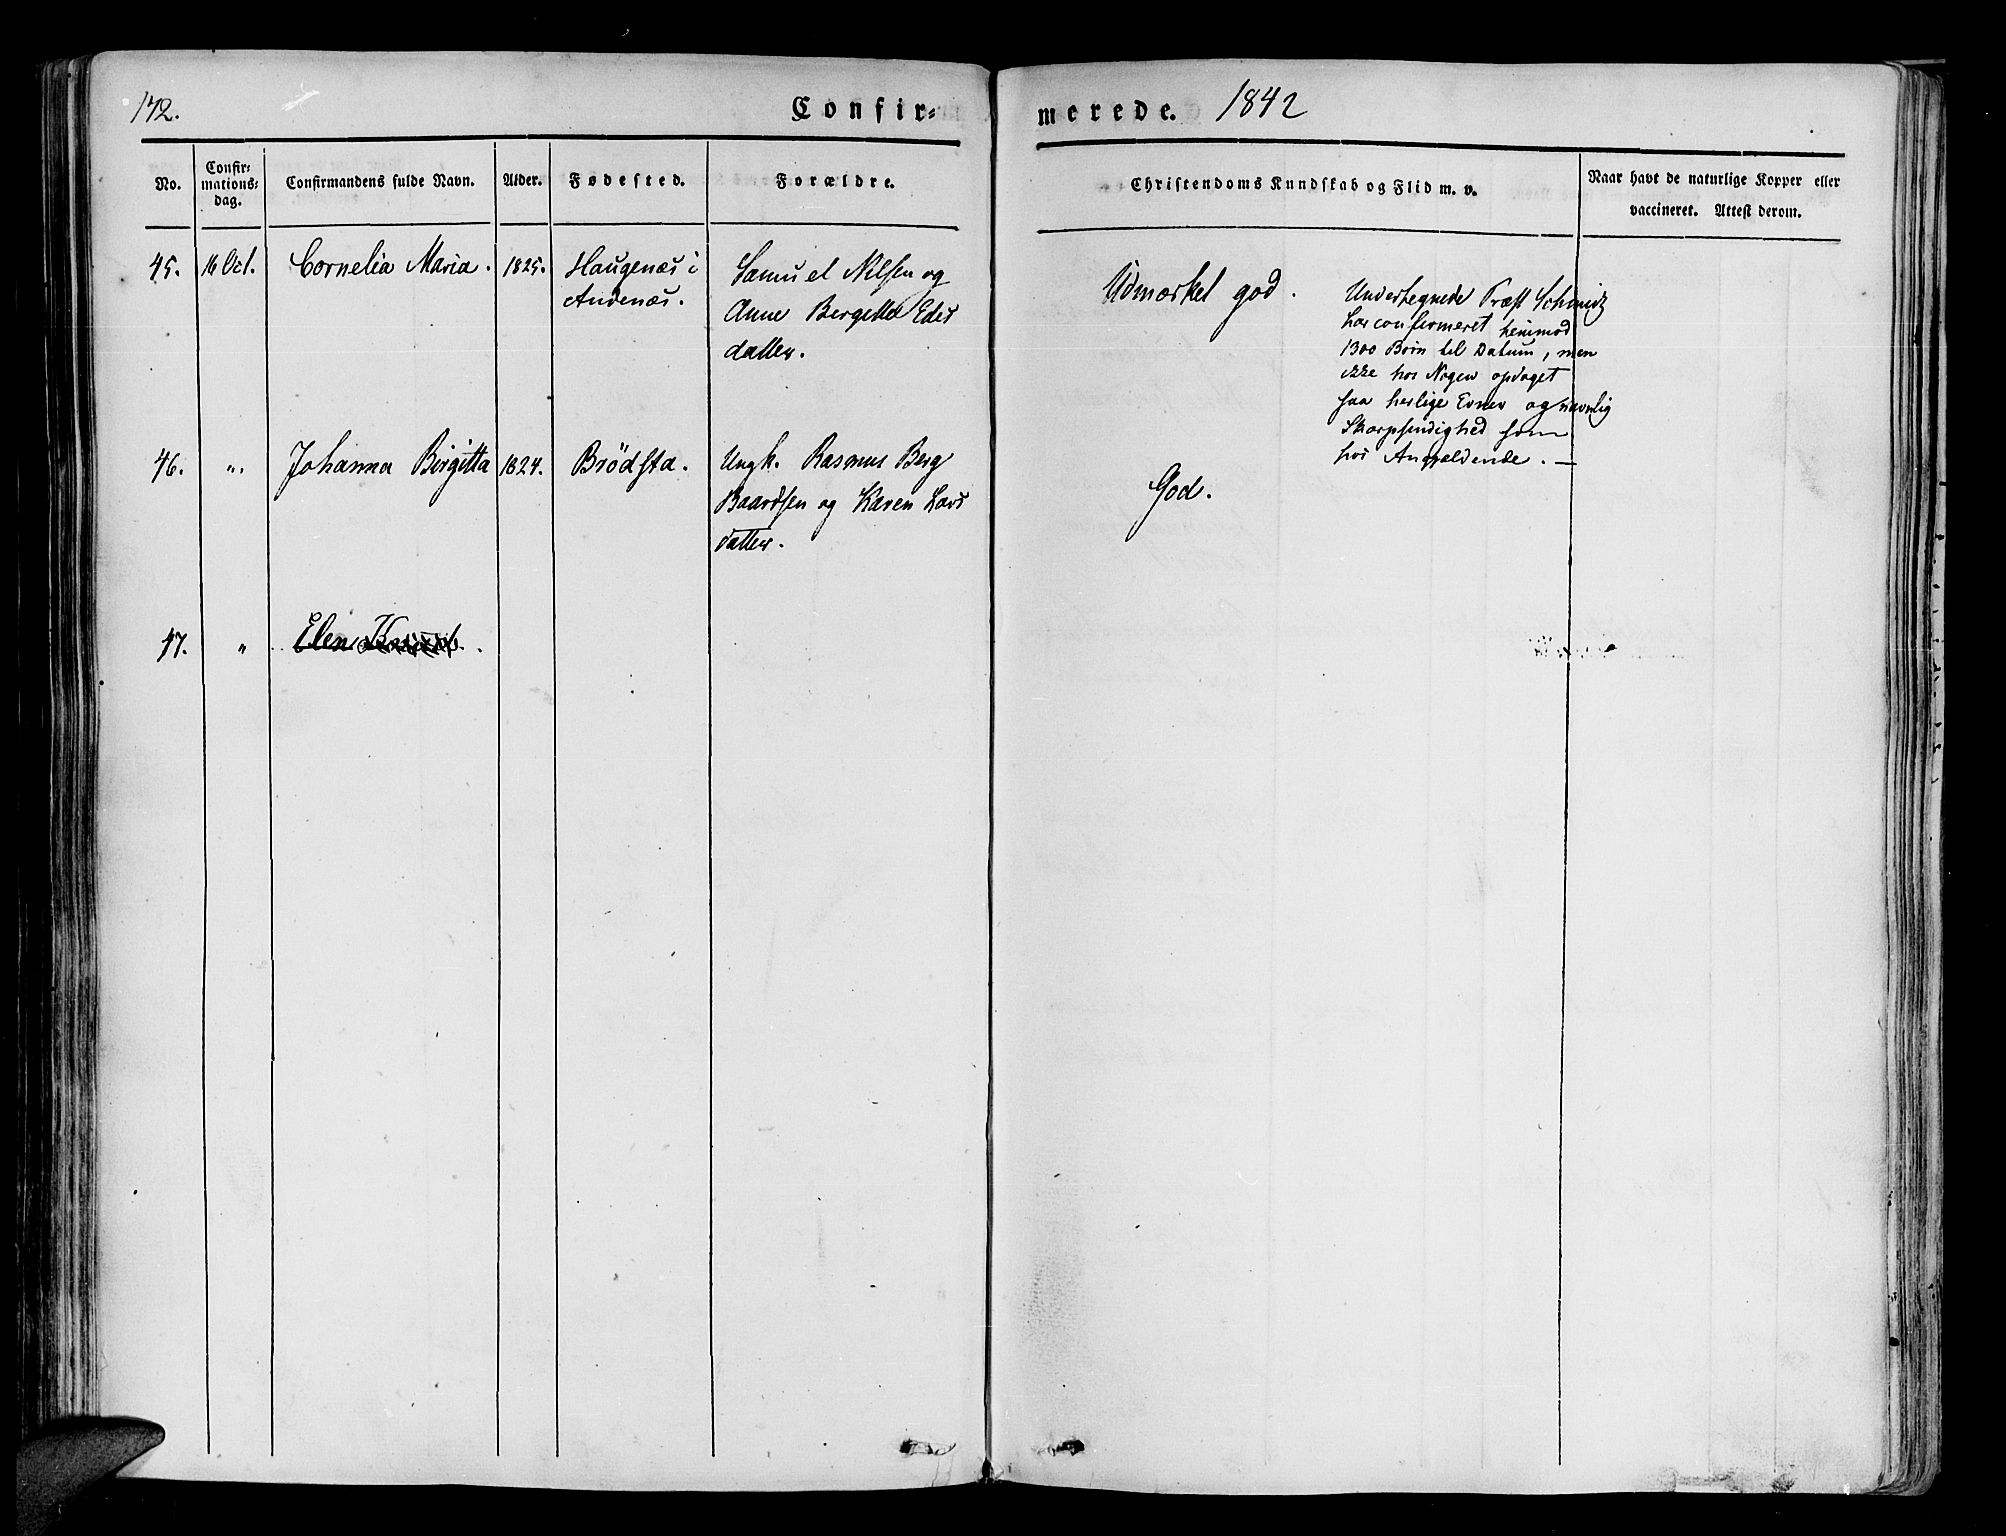 172.
Confir-
merede. 1842
No.
Confir-
mations-
dag.
Confirmandens fulde Navn.
Alder.
Fødested.
Forældre.
Christendoms Kundskab og Flid m. v.
Naar havt de naturlige Kopper eller
vaccineret. Attest derom.
45. 16 Oct. Cornelia Maria. 1825. Haugenæs i
Andenæs.
Samuel Nilsen og
Anne Bergette Eds
datter.
Udmærket god.
Undertegnede Præst Schmidt
har confirmeret henimod
1300 Børn til Datum, men
ikke hos Nogen opdaget
saa herlige Evner og navnlig
Skarpsindighed som
hos Angjældende. —
46. „ Johanna Birgitta 1824. Brödsta.
Ungk. Rasmus Berg
Baardsen og Karen Lars
datter.
God.
47. „ Elen